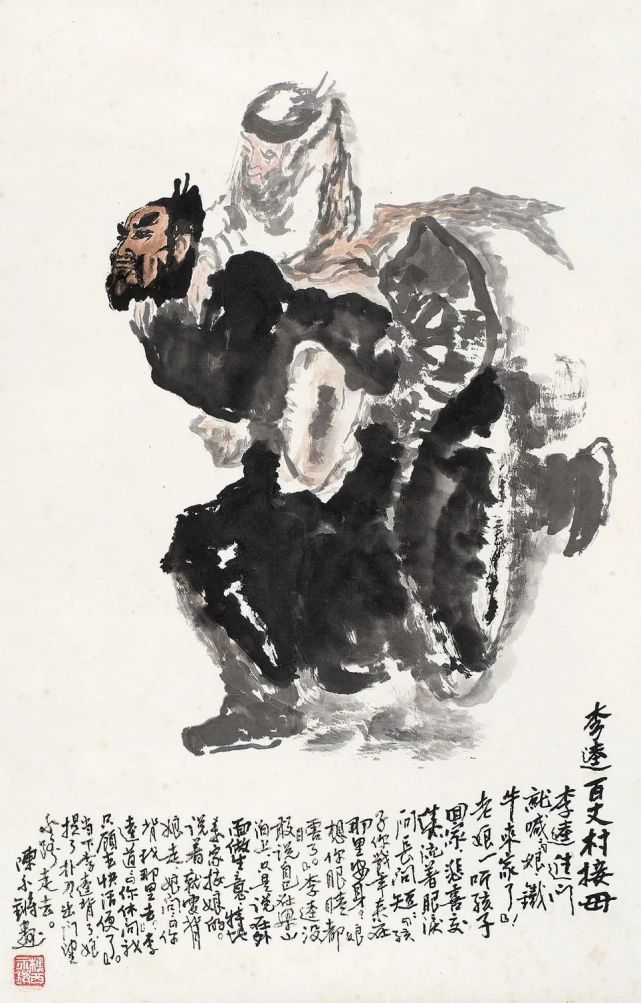 李逵百丈村接母
李逵進门
就喊：娘鐵
牛来家了！
老娘一听孩子
回家，悲喜交
集，流着眼淚
问長问短：孩
子你幾年来在
那里安身。娘
想你眼睛都
瞎了。李逵没
敢説自己在梁山
泊上，只是说在外
面做生意，特地
来家接娘的。
说着就要背
娘走，娘问：你
背我那里去？李
逵道：你休问我
只顧去快活便了。
当下李逵背了娘
提了朴刀出门望
小路走去。
陳永鏘畫